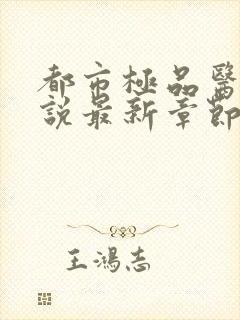 都市極品醫
說最新章節
王鴻志